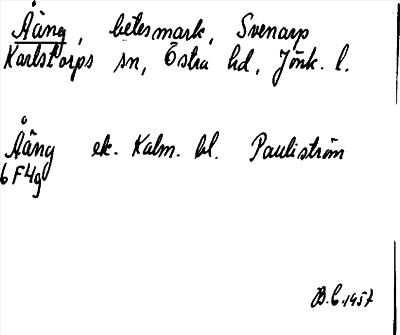 Åäng, betesmark, Svenarp
Karlstorps sn, Östra hd, Jönk. l.
Åäng ek. Kalm. bl. Pauliström
6F4g
B.C. 1957